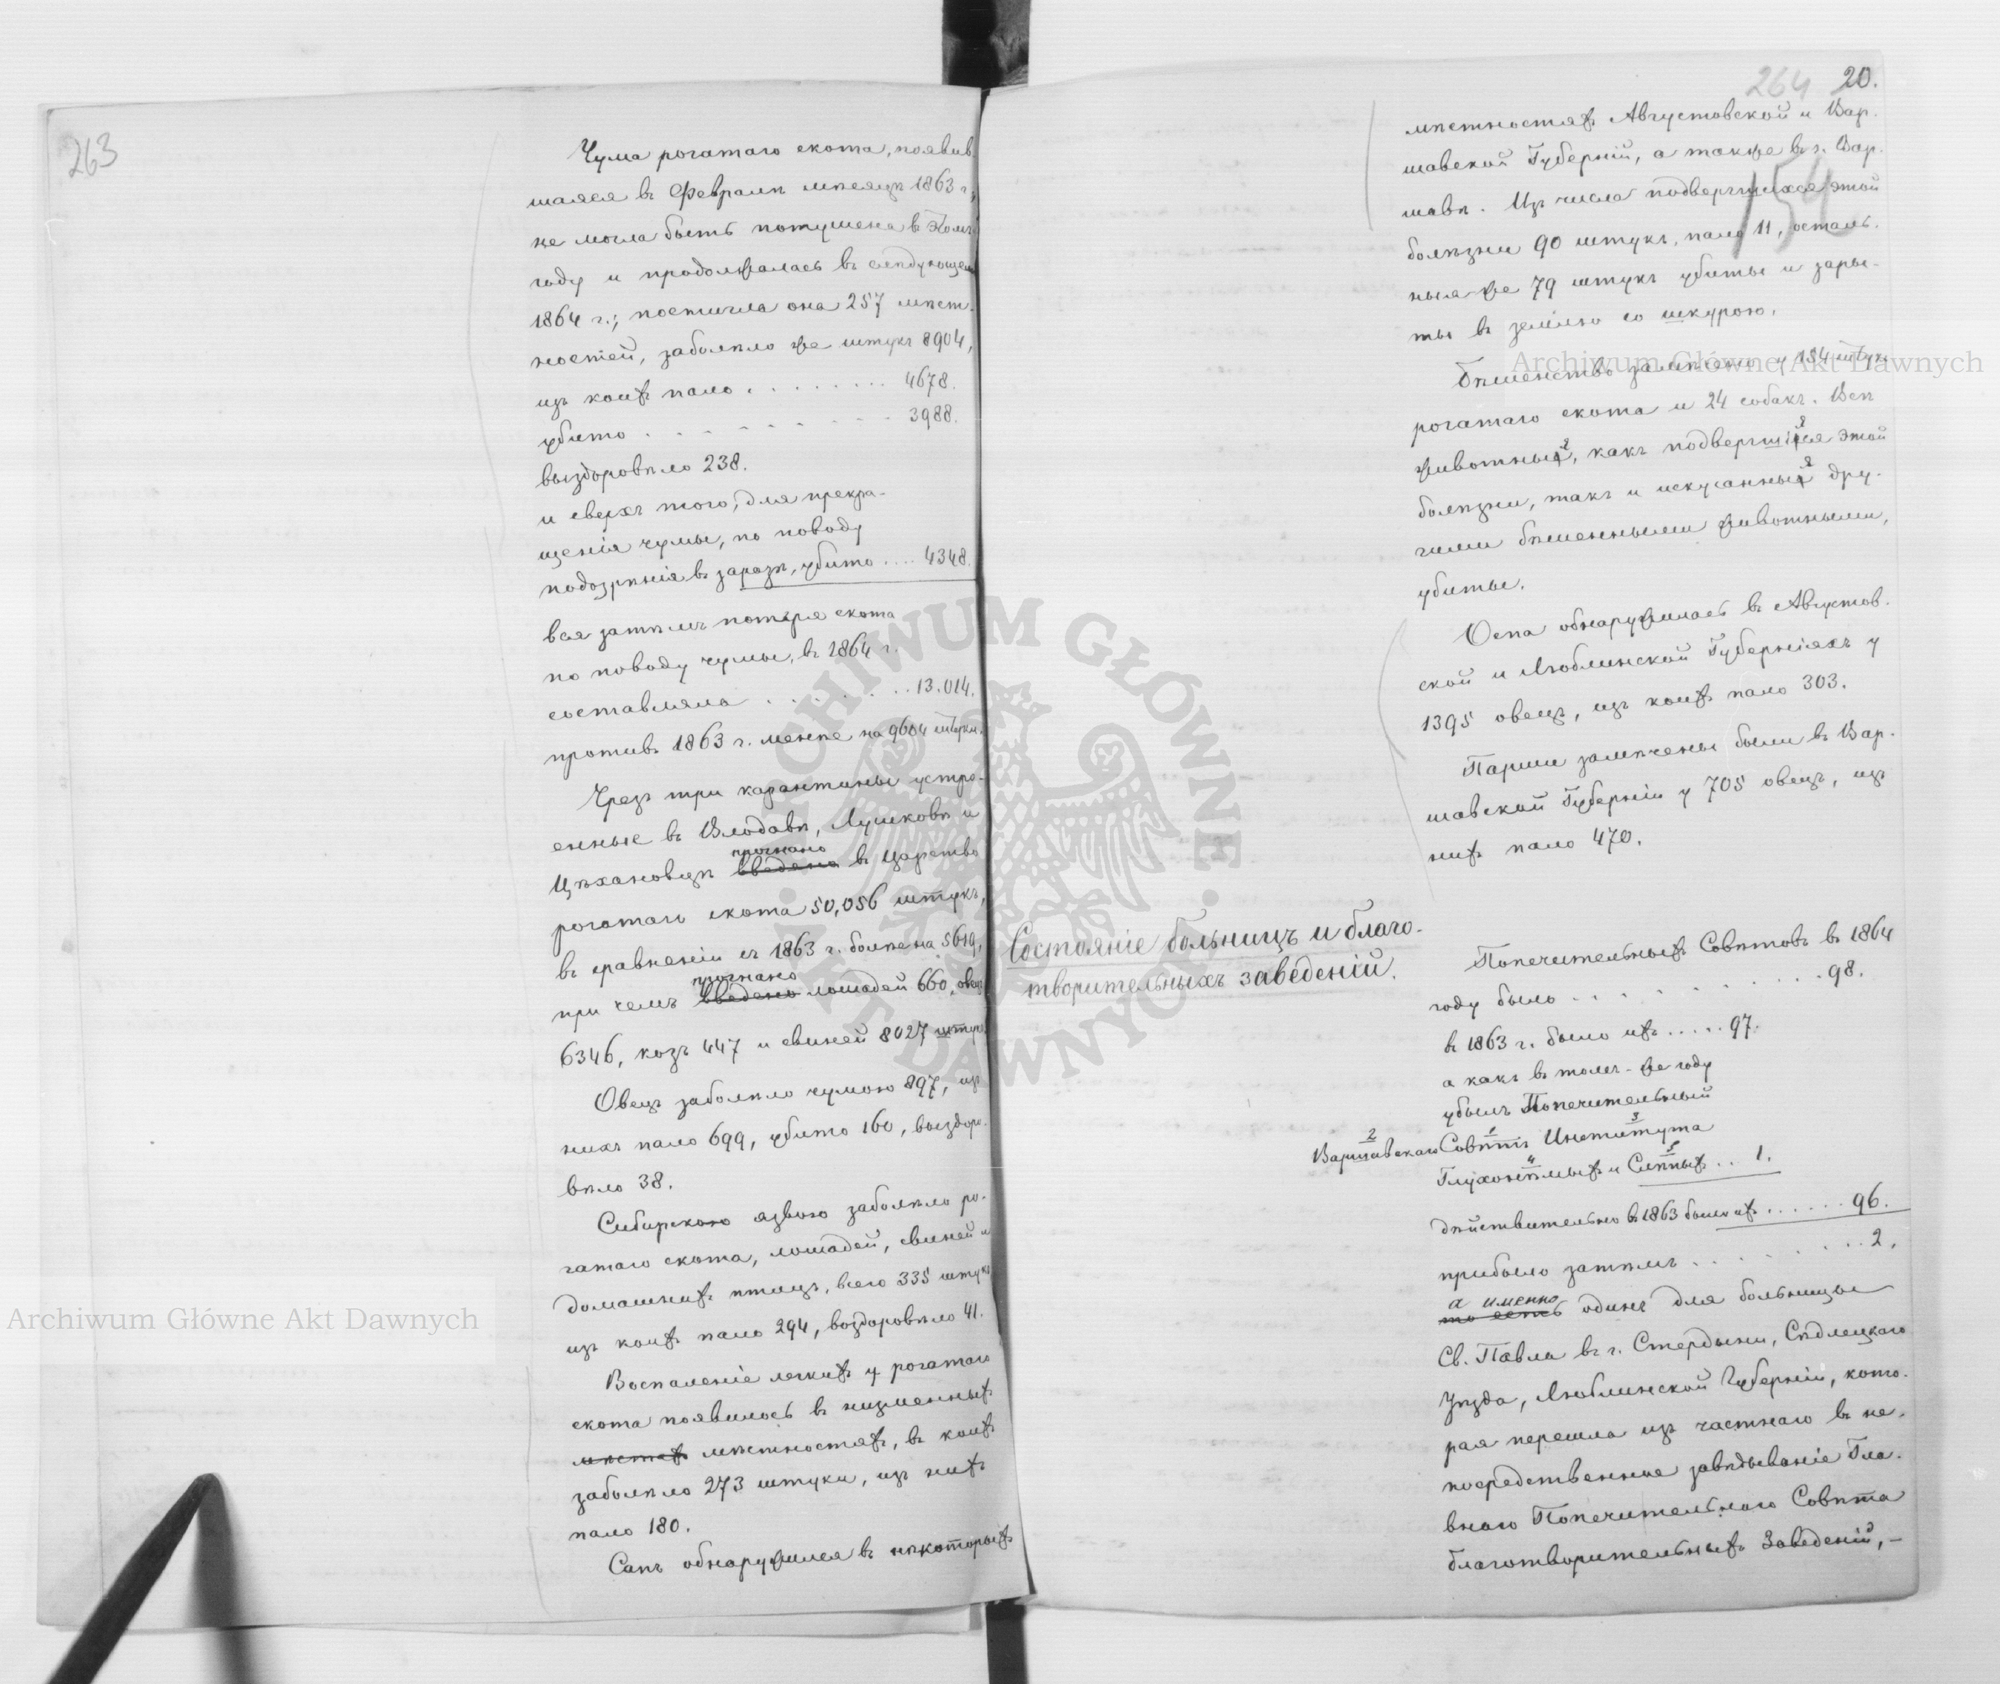 263
Чума рогатаго скота, появив-
шаяся въ Февралѣ мѣсяцѣ 1863 г.,
не могла быть потушена въ томъ
году и продолжалась въ слѣдующемъ
1864 г.; постигла она 257 мѣст-
ностей, заболѣло же штукъ 8904,
изъ коихъ пало . . . . . . . . 4678.
убито . . . . . . . . . 3988.
выздоровѣло 238.
и сверхъ того, для прекра-
щенія чумы, по поводу
подозрѣнія въ заразѣ, убито .... 4348.
вся затѣмъ потеря скота
по поводу чумы, въ 1864 г.
составляла . . . . . . . 13.014.
противъ 1863 г. менѣе на 9604 штуки.
Чрезъ три карантины устро-
енные въ Влодавѣ, Лушковѣ и
прогнано
Цѣхановцѣ введено въ Царство
рогатаго скота 50,056 штукъ,
въ сравненіи съ 1863 г. болѣе на 5619,
прогнано
при чемъ введено лошадей 660, овецъ
6346, козъ 447 и свиней 8027 штукъ
Овецъ заболѣло чумою 897, изъ
нихъ пало 699, убито 160, выздоро-
вѣло 38.
Сибирскою язвою заболѣло ро-
гатаго скота, лошадей, свиней и
домашнихъ птицъ, всего 335 штукъ
изъ коихъ пало 294, воздоровѣло 41.
Воспаленіе легкихъ у рогатаго
скота появилось въ низменныхъ
мѣстахъ мѣстностяхъ, въ коихъ
заболѣло 273 штуки, изъ нихъ
пало 180.
Сапъ обнаружился въ нѣкоторыхъ
264 20.
154
мѣстностяхъ Августовской и Вар-
шавской Губерній, а также въ г. Вар-
шавѣ. Изъ числа подвергшихся этой
болѣзни 90 штукъ, пало 11, осталь-
ныя же 79 штукъ убиты и зары-
ты въ землю со шкурою.
Бѣшенство замѣчено у 134 штукъ
рогатаго скота и 24 собакъ. Всѣ
животныя, какъ подвергшіяся этой
болѣзни, такъ и искусанныя дру-
гими бѣшенными животными,
убиты.
Оспа обнаружилась въ Августов-
ской и Люблинской Губерніяхъ у
1395 овецъ, изъ коихъ пало 303.
Парши замѣчены были въ Вар-
шавской Губерніи у 705 овецъ, изъ
нихъ пало 470.
Состояніе больницъ и благо-
творительныхъ заведеній.
Попечительныхъ Совѣтовъ въ 1864
году было . . . . . . . . . . 98.
въ 1863 г. было ихъ ..... 97.
а какъ въ томъ-же году
убылъ Попечительный
2 1 3
Варшавскаго Совѣтъ Института
4 5
Глухонѣмыхъ и Слѣпыхъ ... 1.
дѣйствительно въ 1863 было ихъ ...... 96.
прибыло затѣмъ . . . . . . . . 2,
а именно
то есть одинъ для больницы
Св. Павла въ г. Стердыни, Сѣдлецкаго
Уѣзда, Люблинской Губерніи, кото-
рая перешла изъ частнаго въ не-
посредственное завѣдываніе Гла-
внаго Попечительнаго Совѣта
благотворительныхъ Заведеній,—
Archiwum Główne Akt Dawnych
Archiwum Główne Akt Dawnych
ARCHIWUM GŁÓWNE · AKT DAWNYCH ·